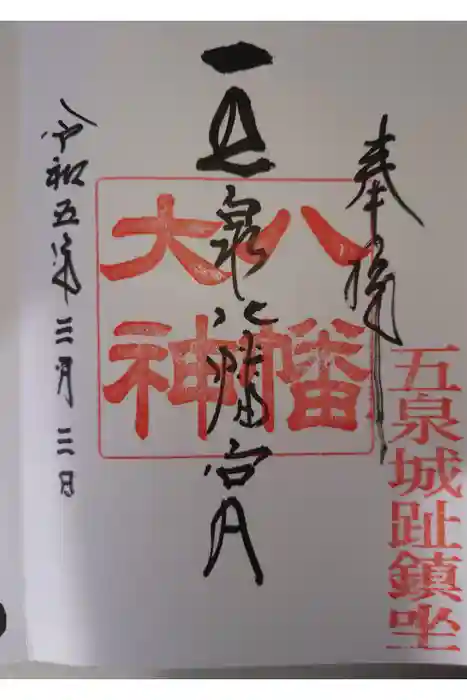 奉拝
五泉城趾鎮坐
五泉八幡宮
八幡
大神
令和五年三月二日